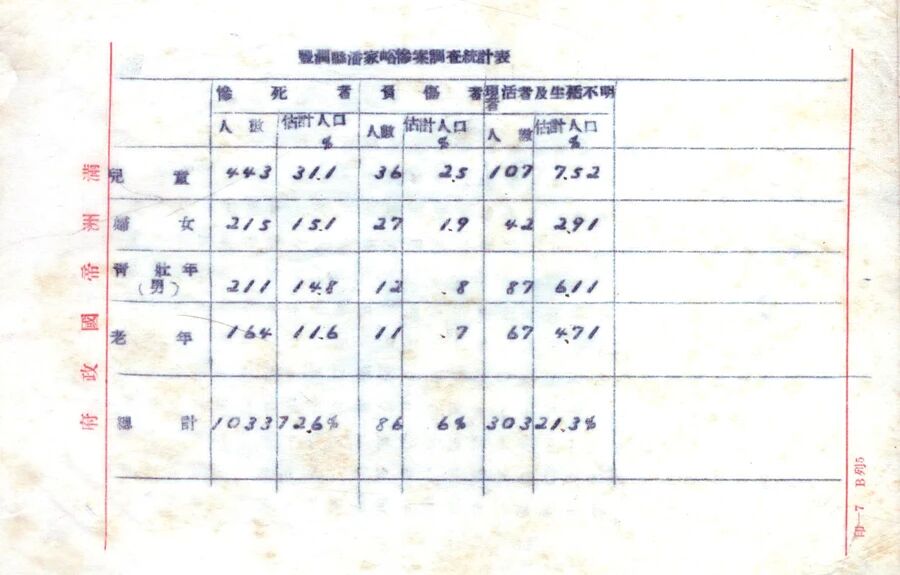 豐潤縣潘家峪慘案調查統計表
慘死者 負傷者 現活者及生死不明者
人數 估計人口% 人數 估計人口% 人數 估計人口%
兒童 443 31.1 36 2.5 107 7.52
婦女 215 15.1 27 1.9 42 2.91
青壯年(男) 211 14.8 12 .8 87 6.11
老年 164 11.6 11 .7 67 4.71
總計 1033 72.6% 86 6% 303 21.3%
滿洲帝國政府
印—7 B列5